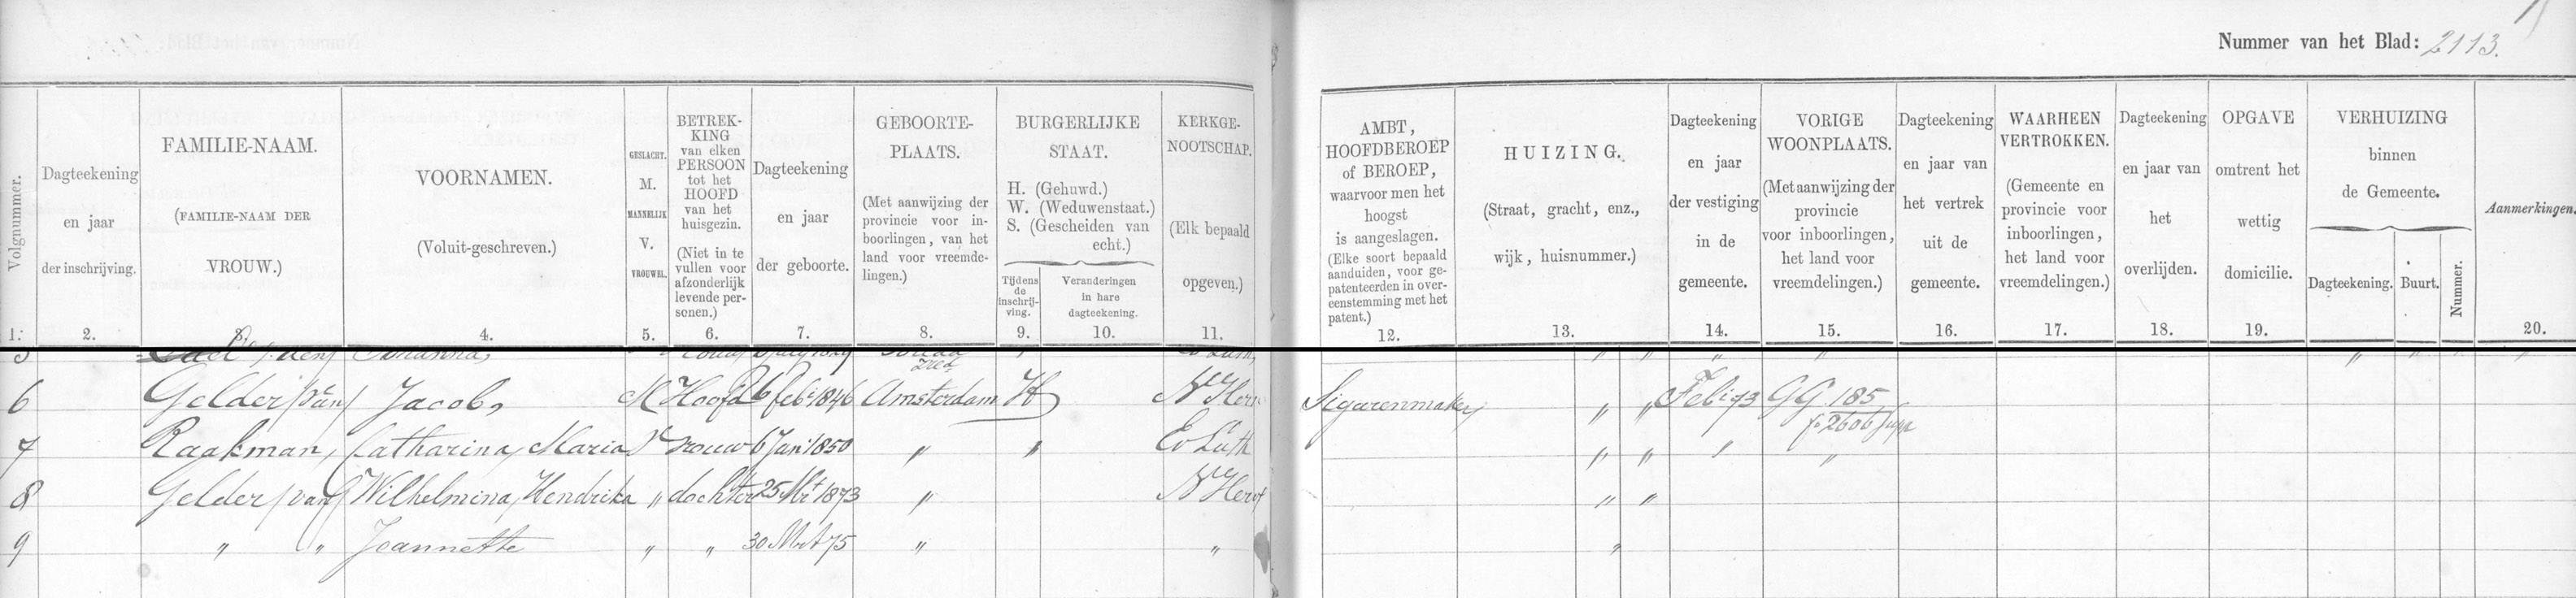 Nummer van het Blad: 2113.
Volgnummer.
1.
Dagteekening
en jaar
der inschrijving.
2.
FAMILIE-NAAM.
(FAMILIE-NAAM DER
VROUW.)
3.
VOORNAMEN.
(Voluit-geschreven.)
4.
GESLACHT.
M.
MANNELIJK
V.
VROUWEL.
5.
BETREK-
KING
van elken
PERSOON
tot het
HOOFD
van het
huisgezin.
(Niet in te
vullen voor
afzonderlijk
levende per-
sonen.)
6.
Dagteekening
en jaar
der geboorte.
7.
GEBOORTE-
PLAATS.
(Met aanwijzing der
provincie voor in-
boorlingen, van het
land voor vreemde-
lingen.)
8.
BURGERLIJKE
STAAT.
H. (Gehuwd.)
W. (Weduwenstaat.)
S. (Gescheiden van
echt.)
Tijdens
de
inschrij-
ving.
9.
Veranderingen
in hare
dagteekening.
10.
KERKGE-
NOOTSCHAP.
(Elk bepaald
opgeven.)
11.
AMBT,
HOOFDBEROEP
of BEROEP,
waarvoor men het
hoogst
is aangeslagen.
(Elke soort bepaald
aanduiden, voor ge-
patenteerden in over-
eenstemming met het
patent.)
12.
HUIZING.
(Straat, gracht, enz.,
wijk, huisnummer.)
13.
Dagteekening
en jaar
der vestiging
in de
gemeente.
14.
VORIGE
WOONPLAATS.
(Met aanwijzing der
provincie
voor inboorlingen,
het land voor
vreemdelingen.)
15.
Dagteekening
en jaar van
het vertrek
uit de
gemeente.
16.
WAARHEEN
VERTROKKEN.
(Gemeente en
provincie voor
inboorlingen,
het land voor
vreemdelingen.)
17.
Dagteekening
en jaar van
het
overlijden.
18.
OPGAVE
omtrent het
wettig
domicilie.
19.
VERHUIZING
binnen
de Gemeente.
Dagteekening.
Buurt.
Nummer.
Aanmerkingen.
20.
6 Gelder (van) Jacob, M Hoofd 6 feb: 1846 Amsterdam H N Herv Sigarenmaker " " Feb: 73 GG 185
7 Raakman, Catharina Maria V vrouw 6 Jan: 1850 " " Ev Luth " " " "
8 Gelder (van) Wilhelmina Hendrika " dochter 25 Mrt 1873 " N Herv " "
9 " " Jeannette " " 30 Mrt 75 " " "